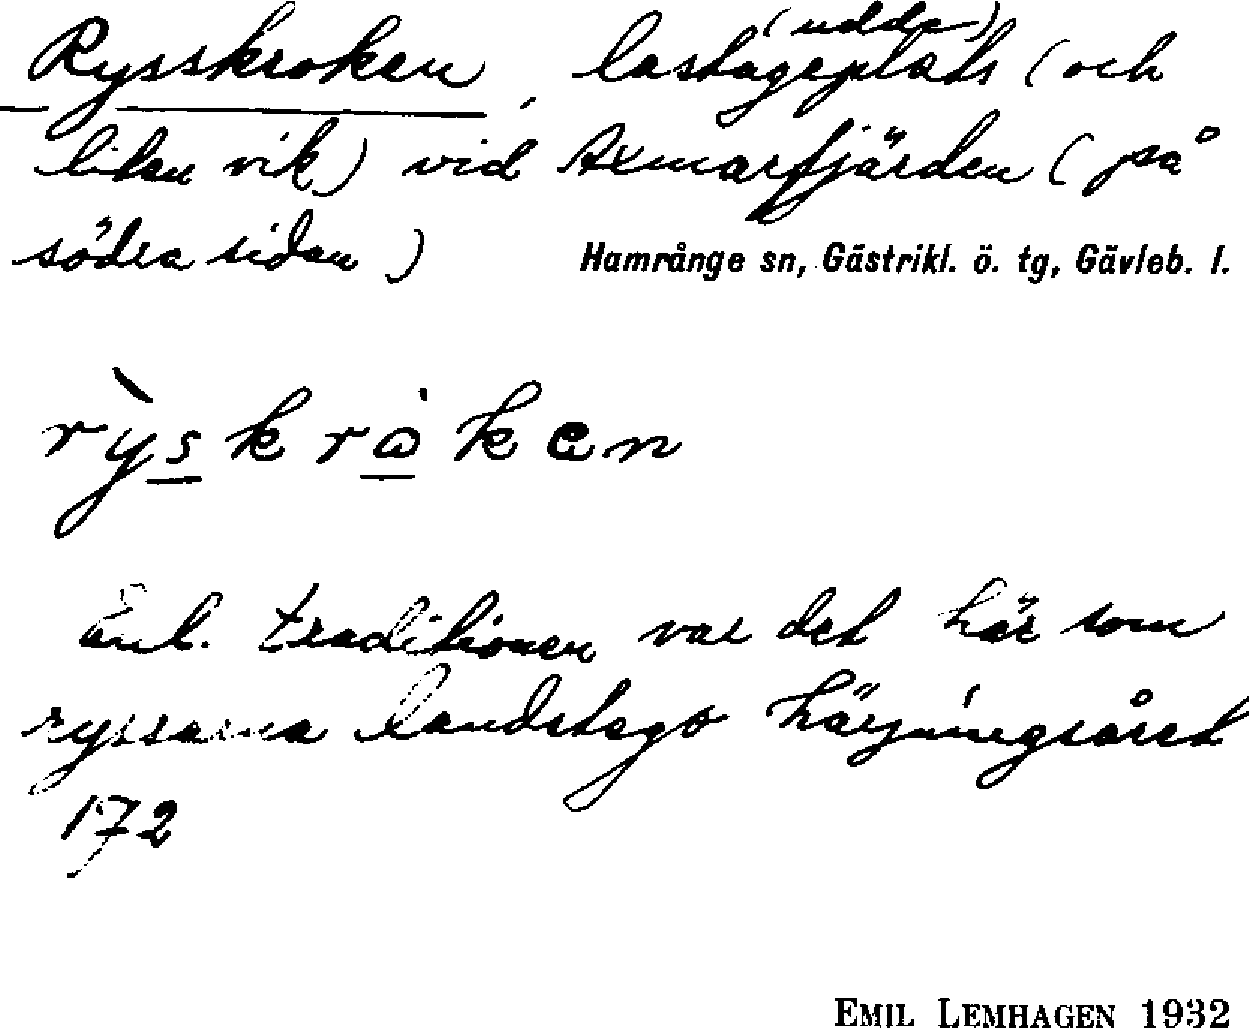 Rysskroken, lastageplats (udde) (och
liten vik) vid Axmarfjärden (på
södra sidan)
Hamrånge sn, Gästrikl. ö. tg, Gävleb. l.
rỳskrȯken
Enl. traditionen var det här som
ryssarna landstego härjningsåret
172
EMIL LEMHAGEN 1932